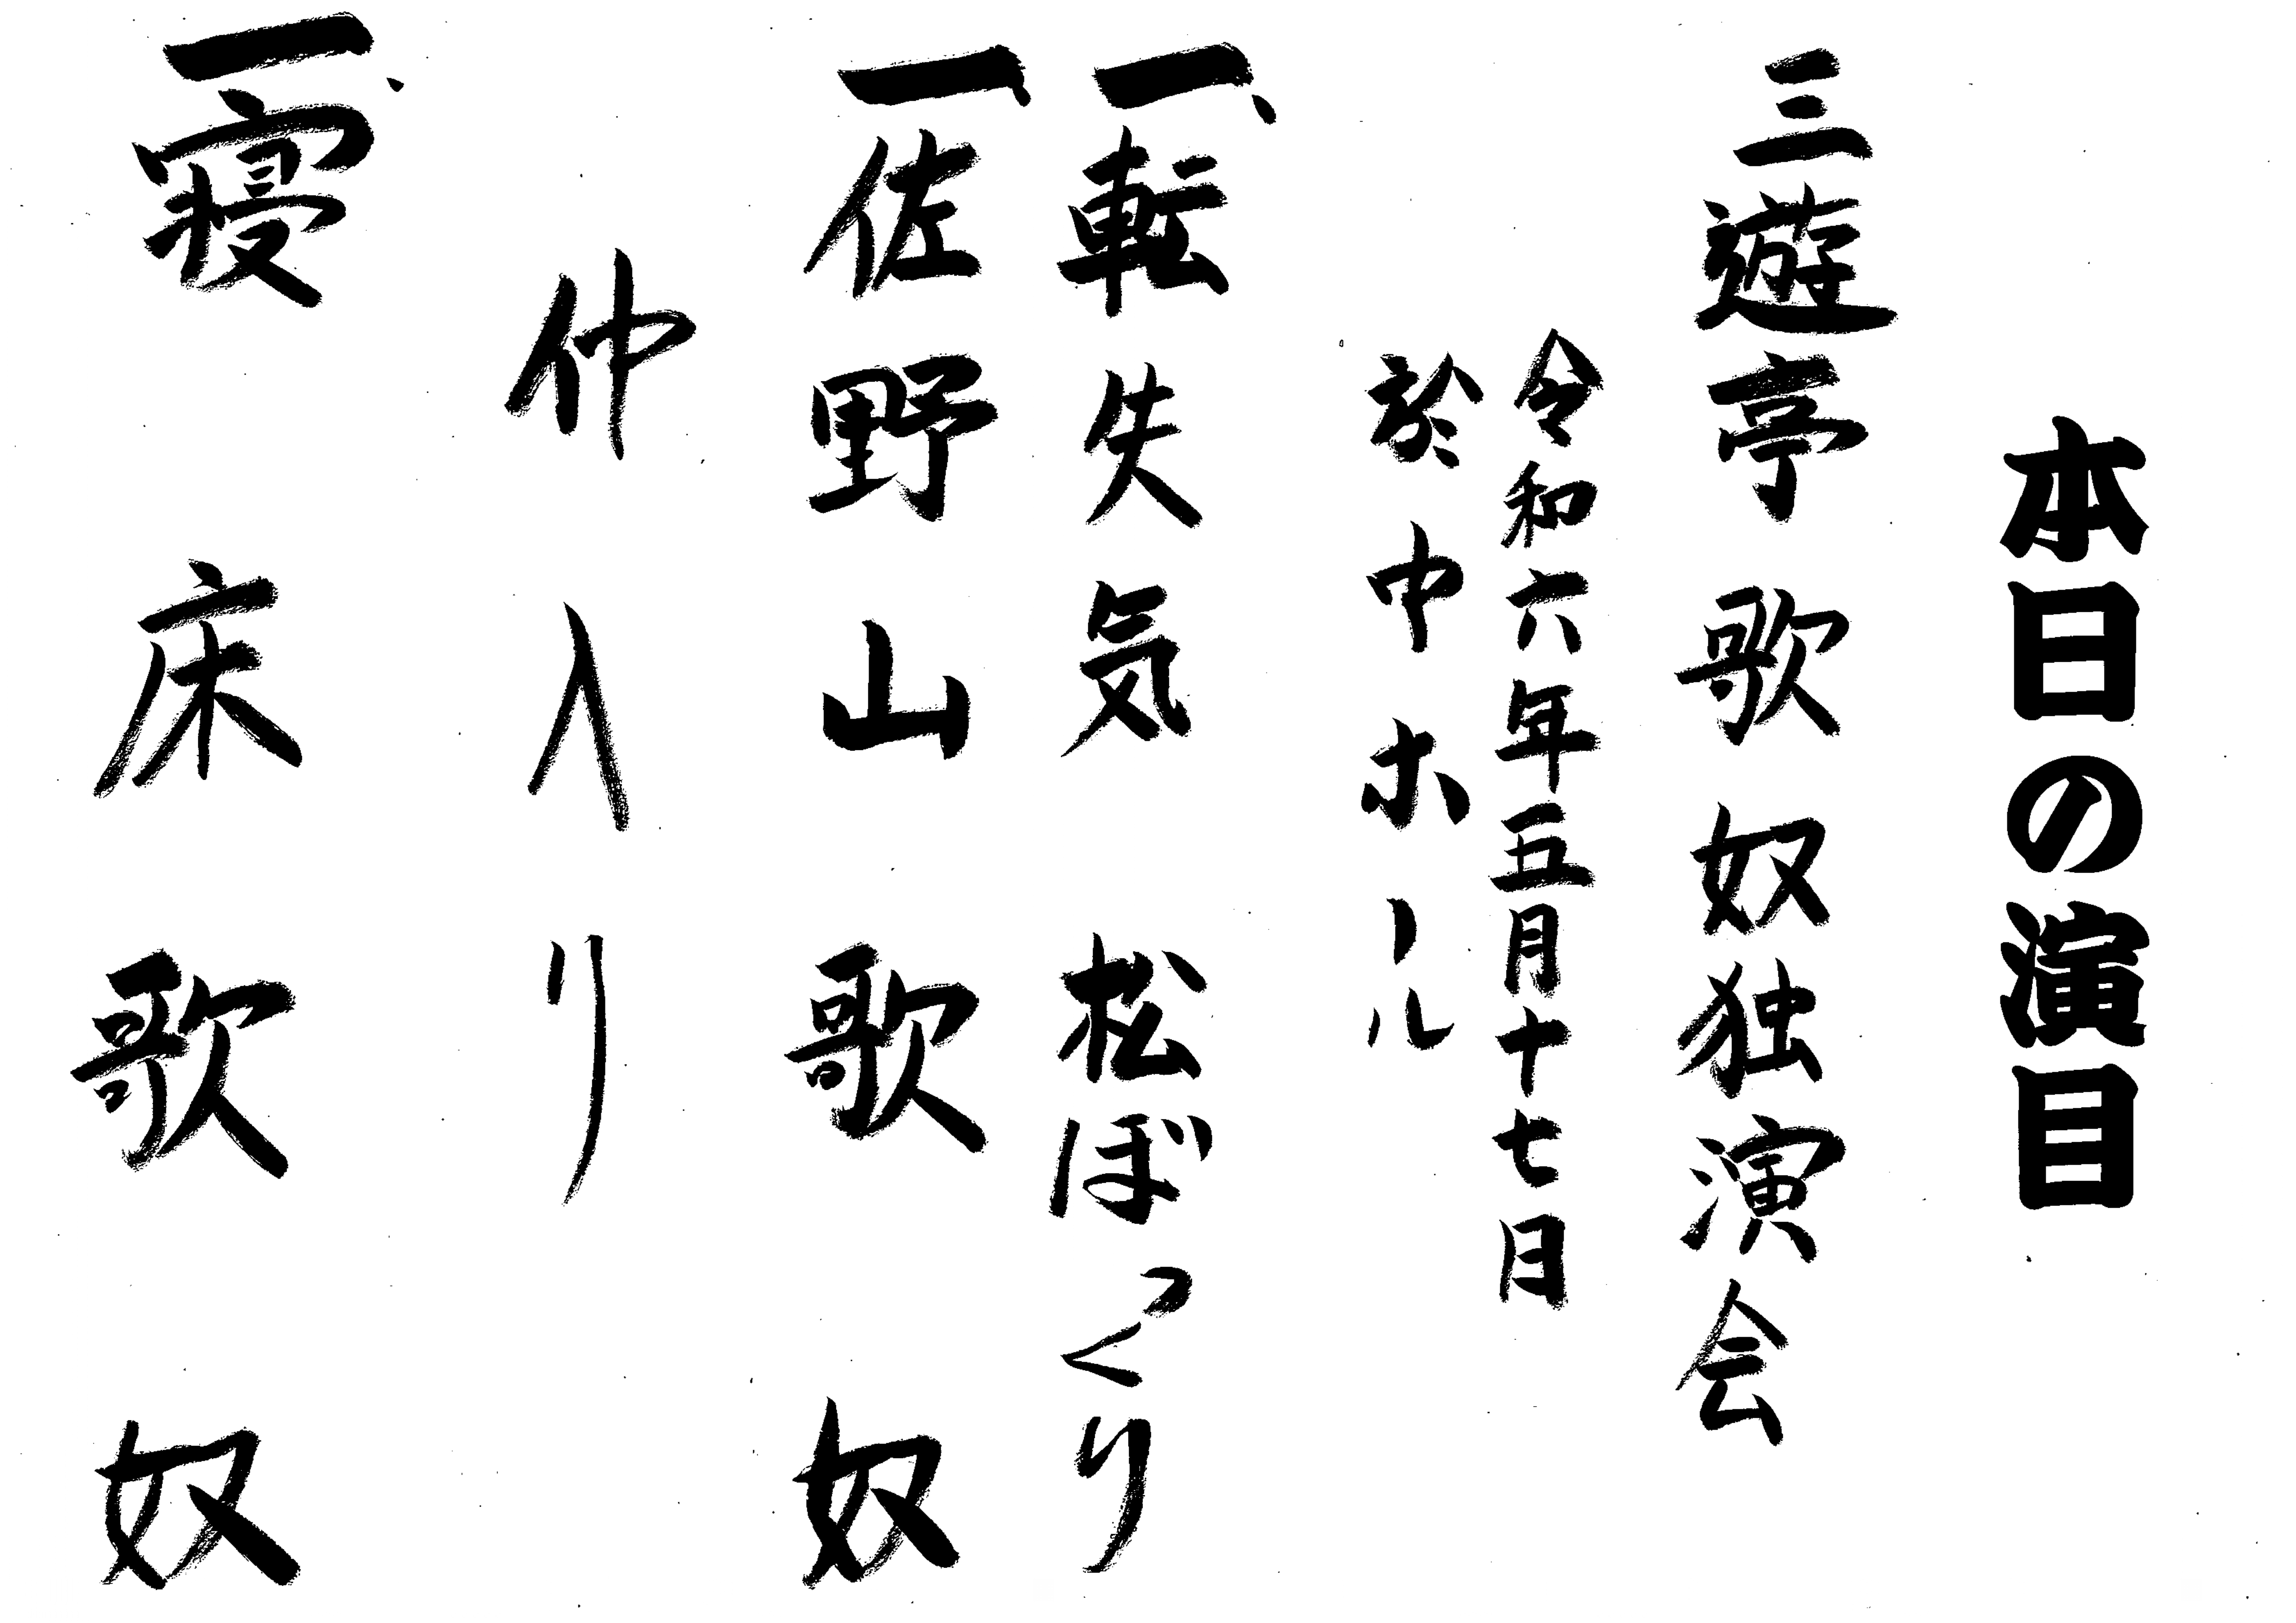 本日の演目
三遊亭歌奴独演会
令和六年五月十七日
於中ホール
一、転失気 松ぼっくり
一、佐野山 歌奴
仲入り
一、寝床 歌奴